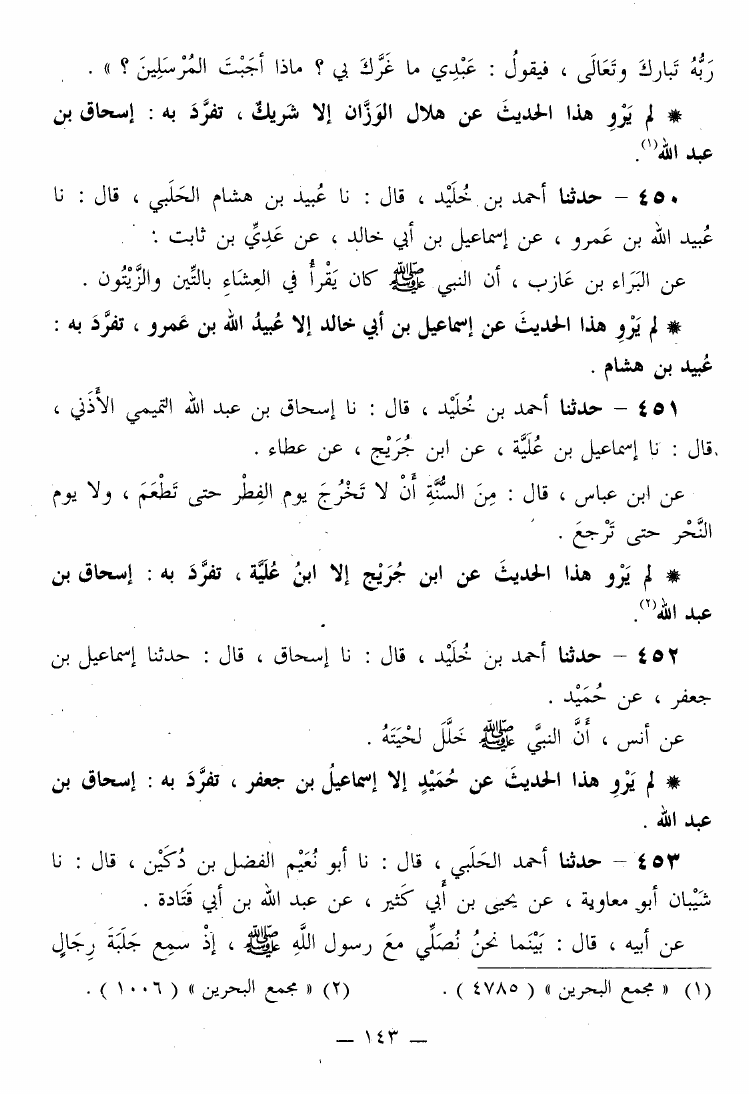 رَبُّهُ تَبارَكَ وتَعَالَى ، فيقولُ : عَبْدِي ما غَرَّكَ بي ؟ ماذا أجَبْتَ المُرْسَلِينَ ؟ » .
* لم يَرْوِ هذا الحديثَ عن هلال الوَزَّان إلا شَريكٌ ، تفرَّدَ به : إسحاق بن
عبد الله(١).
٤٥٠ – حدثنا أحمد بن خُلَيْد ، قال : نا عُبيد بن هشام الحَلَبي ، قال : نا
عُبيد الله بن عَمرو ، عن إسماعيل بن أبي خالد ، عن عَدِيِّ بن ثابت :
عن البَرَاء بن عَازب ، أن النبي ﷺ كان يَقْرأُ في العِشَاءِ بالتِّين والزَّيْتُون .
* لم يَرْوِ هذا الحديثَ عن إسماعيل بن أبي خالد إلا عُبيدُ الله بن عَمرو ، تفرَّدَ به :
عُبيد بن هشام .
٤٥١ – حدثنا أحمد بن خُلَيْد ، قال : نا إسحاق بن عبد الله التميمي الأَذَني ،
قال : نا إسماعيل بن عُلَيَّة ، عن ابن جُرَيْج ، عن عطاء .
عن ابن عباس ، قال : مِنَ السُّنَّةِ أَنْ لا تَخْرُجَ يوم الفِطْر حتى تَطْعَمَ ، ولا يوم
النَّحْر حتى تَرْجعَ .
* لم يَرْو هذا الحديثَ عن ابن جُرَيْج إلا ابنُ عُلَيَّة ، تفرَّدَ به : إسحاق بن
عبد الله(٢).
٤٥٢ – حدثنا أحمد بن خُلَيْد ، قال : نا إسحاق ، قال : حدثنا إسماعيل بن
جعفر ، عن حُمَيْد .
عن أنس ، أَنَّ النبيَّ ﷺ خَلَّلَ لحْيَتَهُ .
* لم يَرْوِ هذا الحديثَ عن حُمَيْدٍ إلا إسماعيلُ بن جعفر ، تفرَّدَ به : إسحاق بن
عبد الله .
٤٥٣ – حدثنا أحمد الحَلَبي ، قال : نا أبو نُعَيْم الفضل بن دُكَيْن ، قال : نا
شَيْبان أبو معاوية ، عن يحيى بن أَبي كَثير ، عن عبد الله بن أبي قَتَادة .
عن أبيه ، قال : بَيْنَما نحنُ نُصَلِّي معَ رسول اللَّهِ ﷺ ، إذْ سمِع جَلَبَةَ رِجَالٍ
(١) « مجمع البحرين » ( ٤٧٨٥ ) . (٢) « مجمع البحرين » ( ١٠٠٦ ) .
— ١٤٣ —